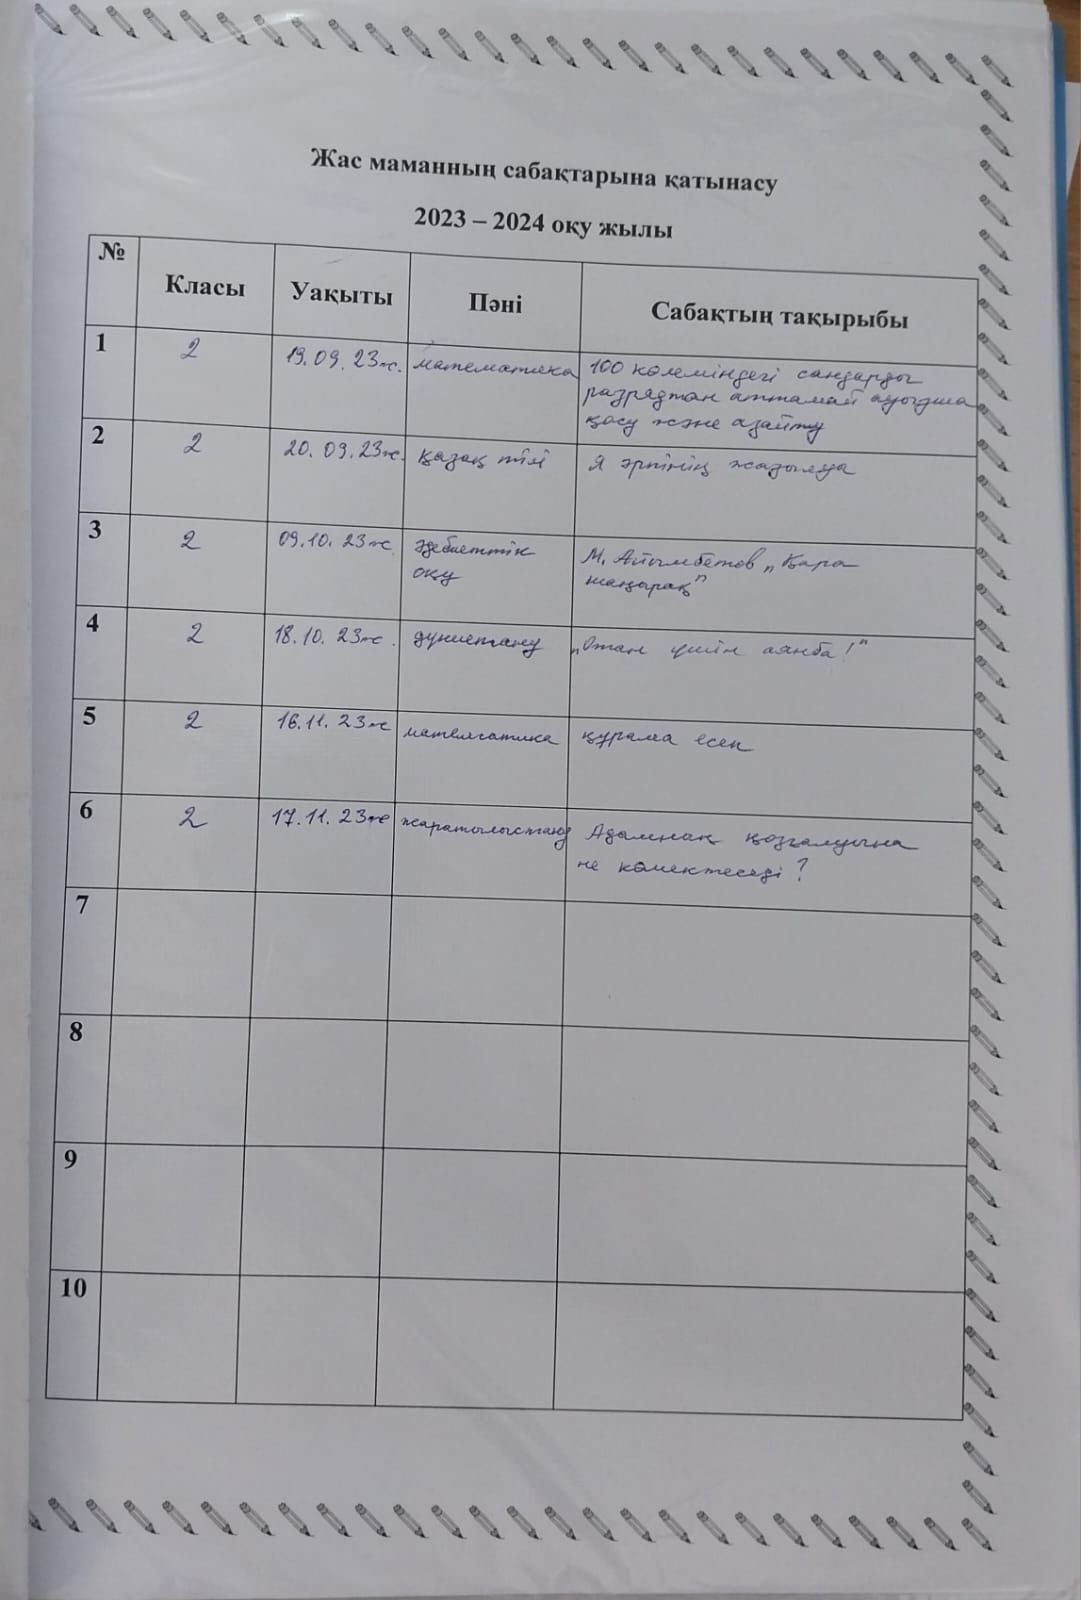 Жас маманның сабақтарына қатынасу
2023 – 2024 оқу жылы
№ Класы Уақыты Пәні Сабақтың тақырыбы
1 2 19.09.23ж. математика 100 көлеміндегі сандарды
разрядтан аттамай ауызша
қосу және азайту
2 2 20.09.23ж. қазақ тілі Я әрпінің жазылуы
3 2 09.10.23ж. әдебиеттік М. Айымбетов „Қара
оқу шаңырақ"
4 2 18.10.23ж. дүниетану „Отан үшін аянба!"
5 2 16.11.23ж математика құрама есеп
6 2 17.11.23ж жаратылыстану Адамның қозғалуына
не көмектеседі?
7
8
9
10